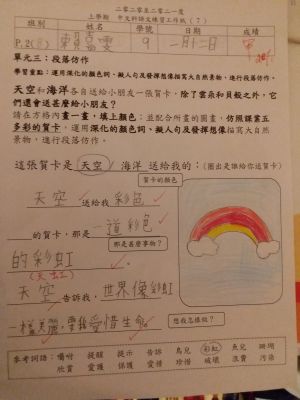 二零二零至二零二一度
上學期 中文科語文練習工作紙(7)
班別 姓名 學號 日期 成績
P.2(B) 賴嘉雯 9 一月十二日 甲
單元三:段落仿作
學習重點:運用深化的顏色詞、擬人句及發揮想像描寫大自然景物,進行段落仿作。
天空和海洋各自送給小朋友一張大賀卡,除了雲朵和貝殼之外,它
們還會送甚麼給小朋友?
請在方格內畫一畫,填上顏色;並配合所畫的圖畫,仿照課業五
多彩的賀卡,運用深化的顏色詞、擬人句及發揮想像描寫大自然
景物,進行段落仿作。
這張賀卡是 天空 / 海洋 送給我的:(圈出是誰給你送賀卡)
賀卡的顏色
天空 送給我 彩色
的賀卡,那是 一道彩色
那是甚麼事物?
的彩虹
(天空)
天空 告訴我,世界像彩虹
一樣美麗,要我愛惜生命。
想我怎樣做?
參考詞語:囑咐 提醒 提示 告訴 鳥兒 彩虹 魚兒 珊瑚
欣賞 愛護 保護 愛惜 珍惜 破壞 浪費 污染